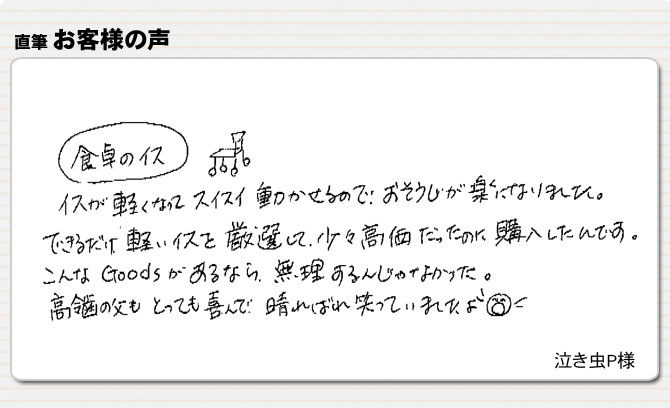 直筆 お客様の声
食卓のイス
イスが軽くなって スイスイ 動かせるので、おそうじが楽になりました。
できるだけ 軽いイスを 厳選して、少々高価だったのに 購入したんです。
こんな Goods があるなら、無理するんじゃなかった。
高齢の父も とっても喜んで 晴ればれ笑っていましたよ
泣き虫P様